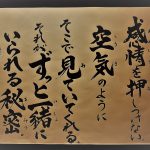 感情を押しつけない
空気のように
そこで見ていてくれる
それがずっと一緒に
いられる秘密